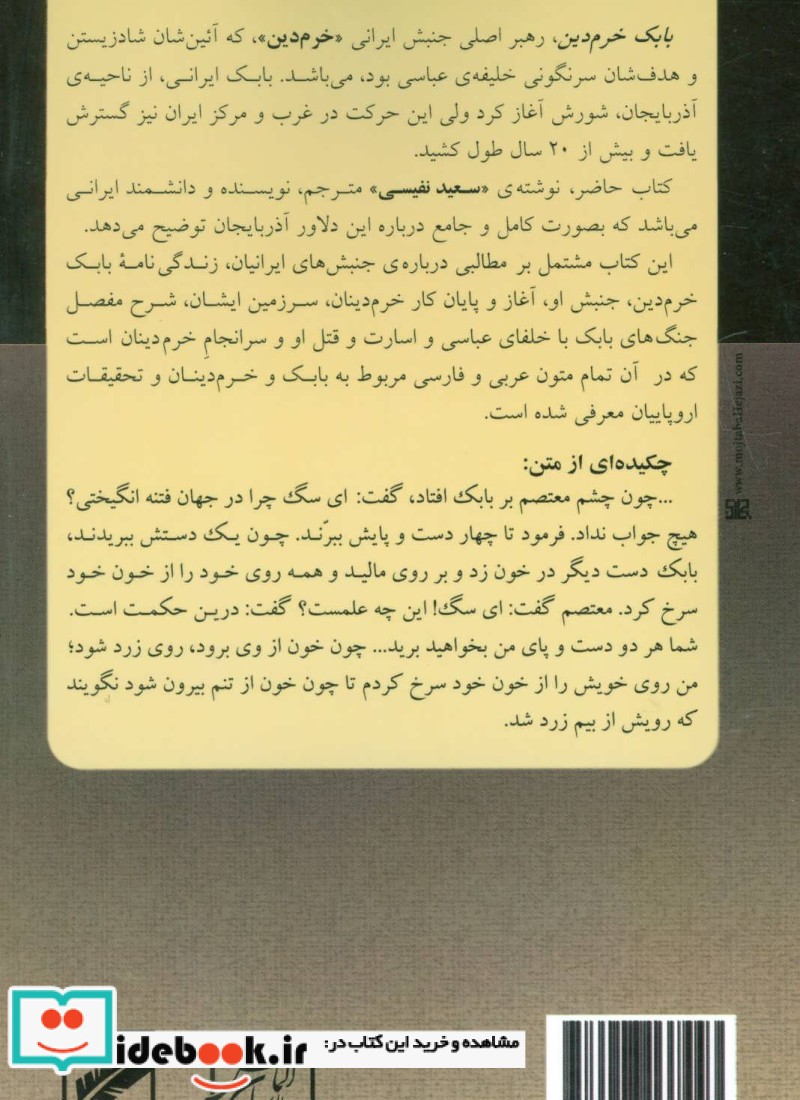 بابک خرم‌دین، رهبر اصلی جنبش ایرانی «خرم‌دین»، که آئین‌شان شادزیستن
و هدف‌شان سرنگونی خلیفه‌ی عباسی بود، می‌باشد. بابک ایرانی، از ناحیه‌ی
آذربایجان، شورش آغاز کرد ولی این حرکت در غرب و مرکز ایران نیز گسترش
یافت و بیش از ۲۰ سال طول کشید.
کتاب حاضر، نوشته‌ی «سعید نفیسی» مترجم، نویسنده و دانشمند ایرانی
می‌باشد که بصورت کامل و جامع درباره این دلاور آذربایجان توضیح می‌دهد.
این کتاب مشتمل بر مطالبی درباره‌ی جنبش‌های ایرانیان، زندگی‌نامهٔ بابک
خرم‌دین، جنبش او، آغاز و پایان کار خرم‌دینان، سرزمین ایشان، شرح مفصل
جنگ‌های بابک با خلفای عباسی و اسارت و قتل او و سرانجامِ خرم‌دینان است
که در آن تمام متون عربی و فارسی مربوط به بابک و خرم‌دینان و تحقیقات
اروپاییان معرفی شده است.
چکیده‌ای از متن:
...چون چشم معتصم بر بابک افتاد، گفت: ای سگ چرا در جهان فتنه انگیختی؟
هیچ جواب نداد. فرمود تا چهار دست و پایش ببرّند. چون یک دستش ببریدند،
بابک دست دیگر در خون زد و بر روی مالید و همه روی خود را از خون خود
سرخ کرد. معتصم گفت: ای سگ! این چه علمست؟ گفت: درین حکمت است.
شما هر دو دست و پای من بخواهید برید... چون خون از وی برود، روی زرد شود؛
من روی خویش را از خون خود سرخ کردم تا چون خون از تنم بیرون شود نگویند
که رویش از بیم زرد شد.
www.mojtabaliejazi.com
مشاهده و خرید این کتاب در:
idebook.ir